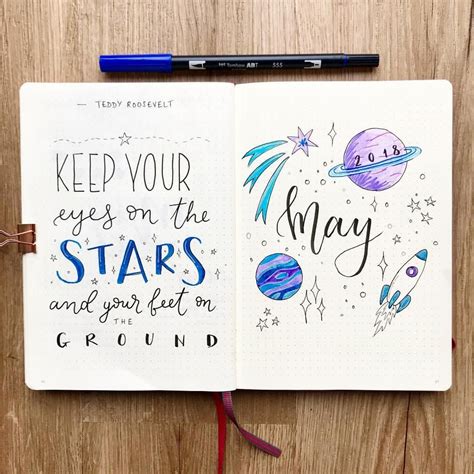 Tombow ABT 555
— TEDDY ROOSEVELT
KEEP YOUR
eyes on the
STARS
and your feet on
THE
GROUND
2018
May